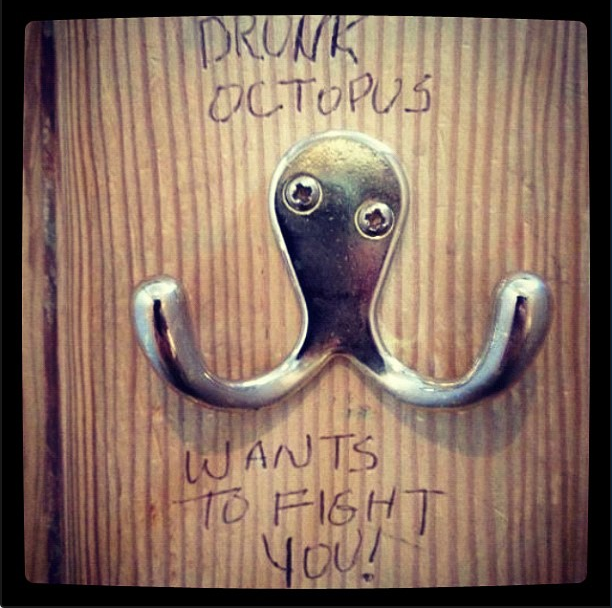 DRUNK
OCTOPUS
WANTS
TO FIGHT
YOU!